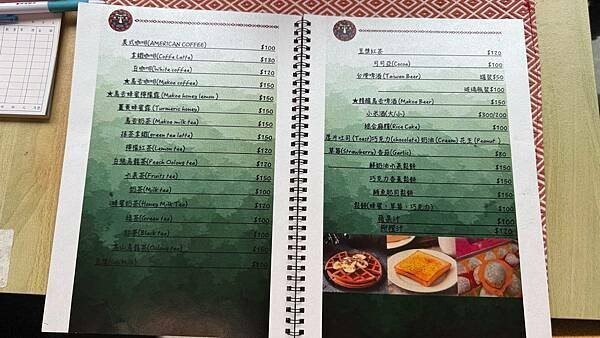 美式咖啡(AMERICAN COFFEE) $100
拿鐵咖啡(Coffe Latte) $130
白咖啡(White coffee) $120
★馬告咖啡(Makoo coffee) $150
★馬告蜂蜜檸檬露(Makoo honey lemon) $150
薑黃蜂蜜露(Turmeric honey) $150
馬告奶茶(Makoo milk tea) $150
抹茶拿鐵(green tea latte) $150
檸檬紅茶(Lemon tea) $120
白桃烏龍茶(Peach Oolong tea) $120
水果茶(Fruits tea) $150
奶茶(Milk tea) $100
蜂蜜奶茶(Honey Milk Tea) $120
綠茶(Green tea) $100
紅茶(Black tea) $100
高山烏龍茶(Oolong tea)
豆漿
豆漿紅茶 $120
可可亞(Cocoa) $100
台灣啤酒(Taiwan Beer) 罐裝$50
玻璃瓶裝$100
★精釀馬告啤酒(Makoo Beer) $150
小米酒(大/小) $300/200
綜合麻糬(Rice Cake) $100
厚片吐司(Toast)巧克力(chocolate)奶油(Cream)花生(Peanut)
草莓(Strawberry)香蒜(Garlic) $80
鮮奶油水果鬆餅 $150
巧克力香蕉鬆餅 $150
鮪魚起司鬆餅 $150
鬆餅(蜂蜜、草莓、巧克力) $100
蘋果汁 $100
柳橙汁 $120